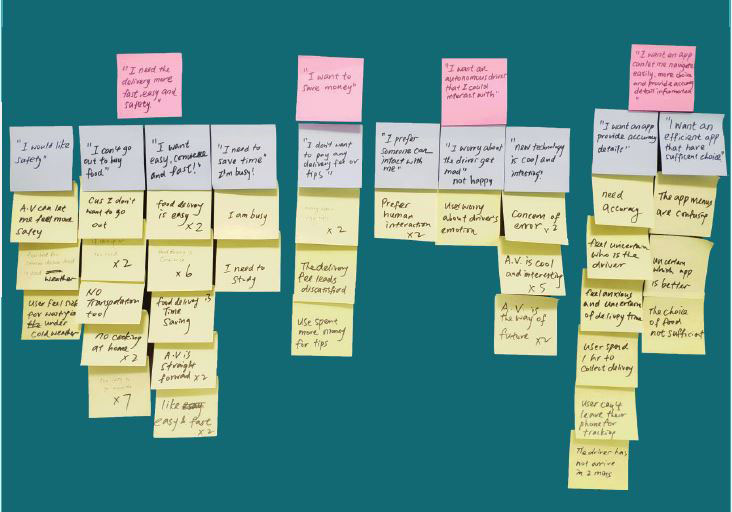 "I need the
delivery more
fast, easy and
safety."
"I would like
safety"
A.V can let
me feel more
safety
weather
User feel
for
under
cold weather
"I can't go
out to buy
food."
Cus I don't
want to go
out
x2
NO
Transpotation
tool
no cooking
at home
x2
x7
"I want
easy,
and fast!"
food delivery
is easy
x2
x6
food delivery is
Time
Saving
A.V is
straight
forward x2
like
easy & fast
x2
"I need to
save time"
I'm busy!
I am busy
I need to
study
"I want to
save money"
"I don't want
to pay any
delivery or
tips"
x2
The delivery
fee leads
Use spent
more money
for tips
"I want an
autonomous driver
that I could
interact with"
"I prefer
someone can
intact with
me"
Prefer
human
interaction
x2
"I worry about
the driver get
mad"
not happy
worry
about driver's
emotion
"new technology
is cool and
Concern of
error x2
A.V. is cool
and interesting
x5
A.V. is
the way of
future x2
"I want an app
can let me navigate
easily, more choice
and provide accuracy
detail"
"I want an app
provide accuracy
details"
need
accuracy
feel uncertain
who is the
driver
feel anxious
and uncertain
of delivery time
user spend
1 hr to
collect delivery
user can't
leave their
phone for
tracking
The driver has
not arrive
in 2 mins
"I want an
efficient app
that have
sufficient choice"
The app menus
are confusing
uncertain
which app
is better
The choice
of food
not sufficient